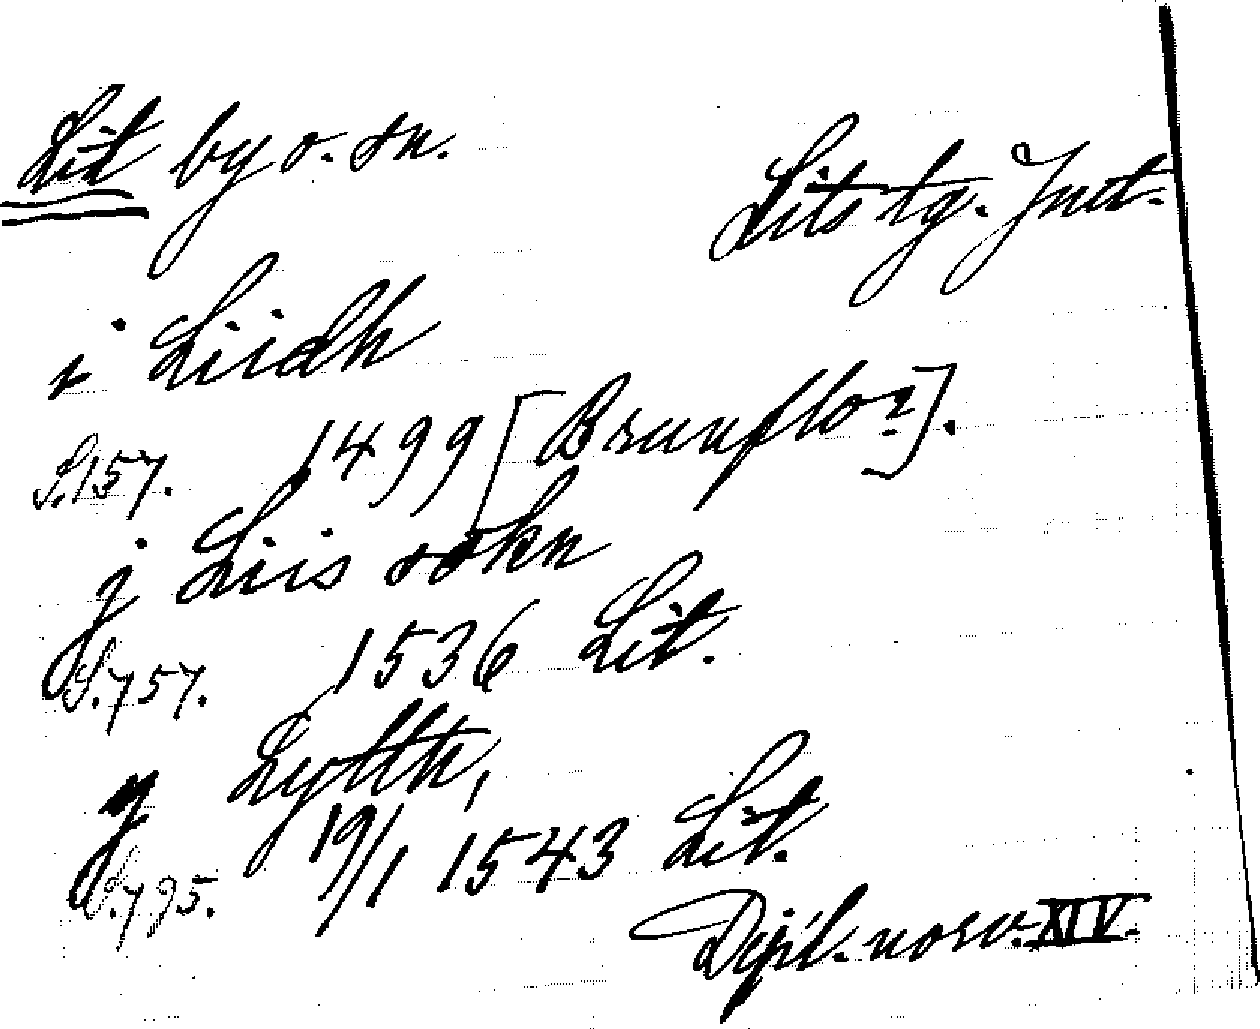 Lit by o. sn. Lits tg. Jmtl.
i Liidh
S.157. 1499 [Brunflo?].
j Liis sokn
S.757. 1536 Lit.
y Lytth,
S.795. 19/1 1543 Lit.
Dipl. norv. XIV.